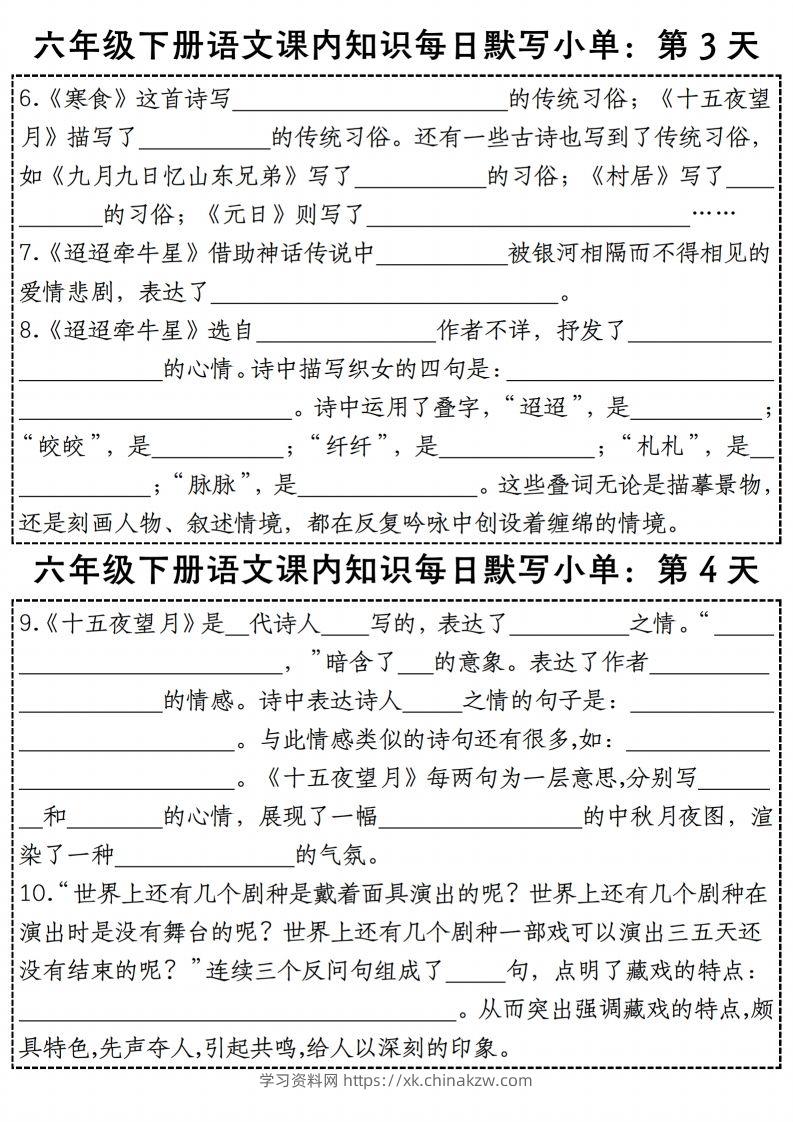 六年级下册语文课内知识每日默写小单：第 3 天
6.《寒食》这首诗写_______________________的传统习俗；《十五夜望
月》描写了___________的传统习俗。还有一些古诗也写到了传统习俗，
如《九月九日忆山东兄弟》写了___________的习俗；《村居》写了____
_______的习俗；《元日》则写了___________________________……
7.《迢迢牵牛星》借助神话传说中___________被银河相隔而不得相见的
爱情悲剧，表达了_____________________________。
8.《迢迢牵牛星》选自_______________作者不详，抒发了____________
____________的心情。诗中描写织女的四句是：______________________
_______________________。诗中运用了叠字，“迢迢”，是___________；
“皎皎”，是___________；“纤纤”，是_____________；“札札”，是__
___________；“脉脉”，是_______________。这些叠词无论是描摹景物，
还是刻画人物、叙述情境，都在反复吟咏中创设着缠绵的情境。
六年级下册语文课内知识每日默写小单：第 4 天
9.《十五夜望月》是__代诗人____写的，表达了__________之情。“_____
______________________，”暗含了___的意象。表达了作者__________
____________的情感。诗中表达诗人_____之情的句子是：____________
__________________。与此情感类似的诗句还有很多,如：____________
__________________。《十五夜望月》每两句为一层意思,分别写______
__和________的心情，展现了一幅_________________的中秋月夜图，渲
染了一种_______________的气氛。
10.“世界上还有几个剧种是戴着面具演出的呢？世界上还有几个剧种在
演出时是没有舞台的呢？世界上还有几个剧种一部戏可以演出三五天还
没有结束的呢？”连续三个反问句组成了_____句，点明了藏戏的特点：
____________________________________。从而突出强调藏戏的特点,颇
具特色,先声夺人,引起共鸣,给人以深刻的印象。
学习资料网 https://xk.chinakzw.com